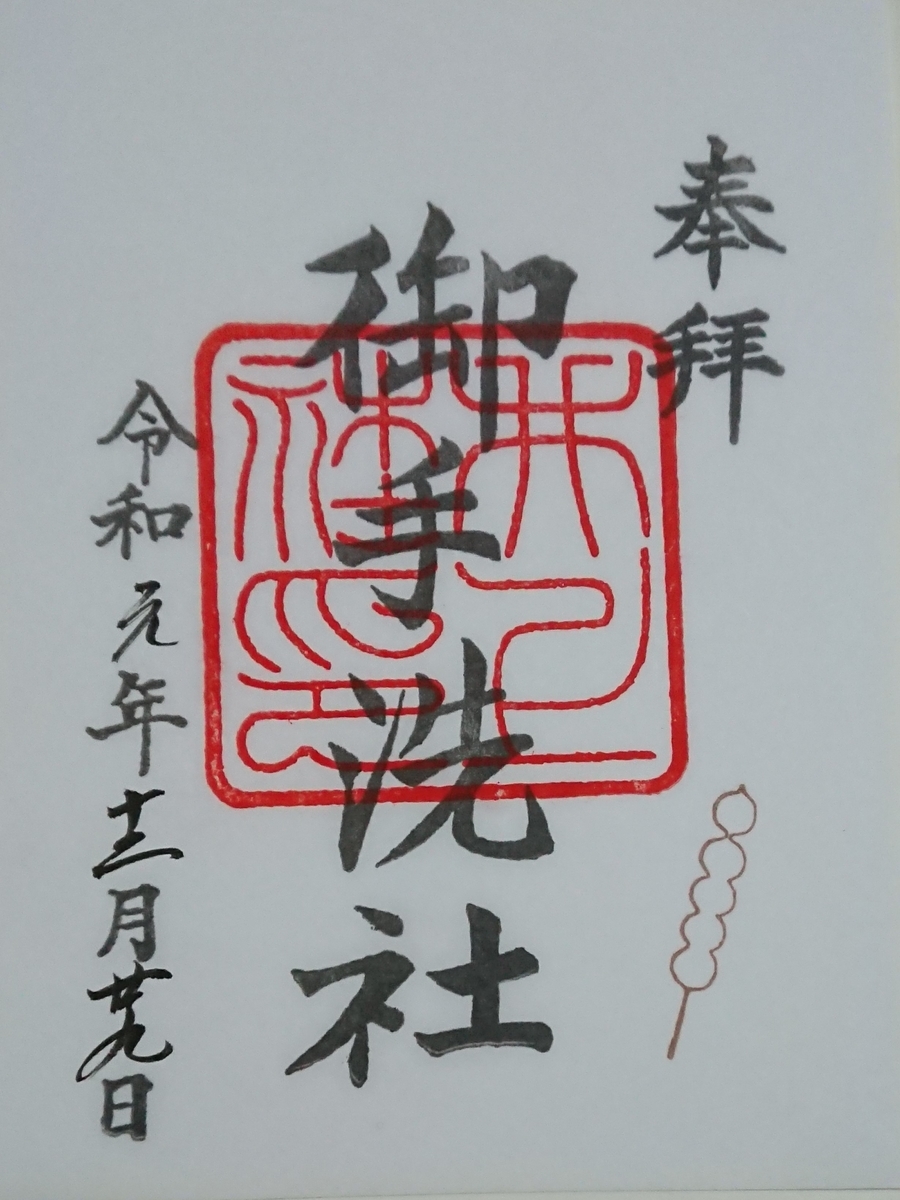 奉拝
御手洗社
令和元年十二月廿九日